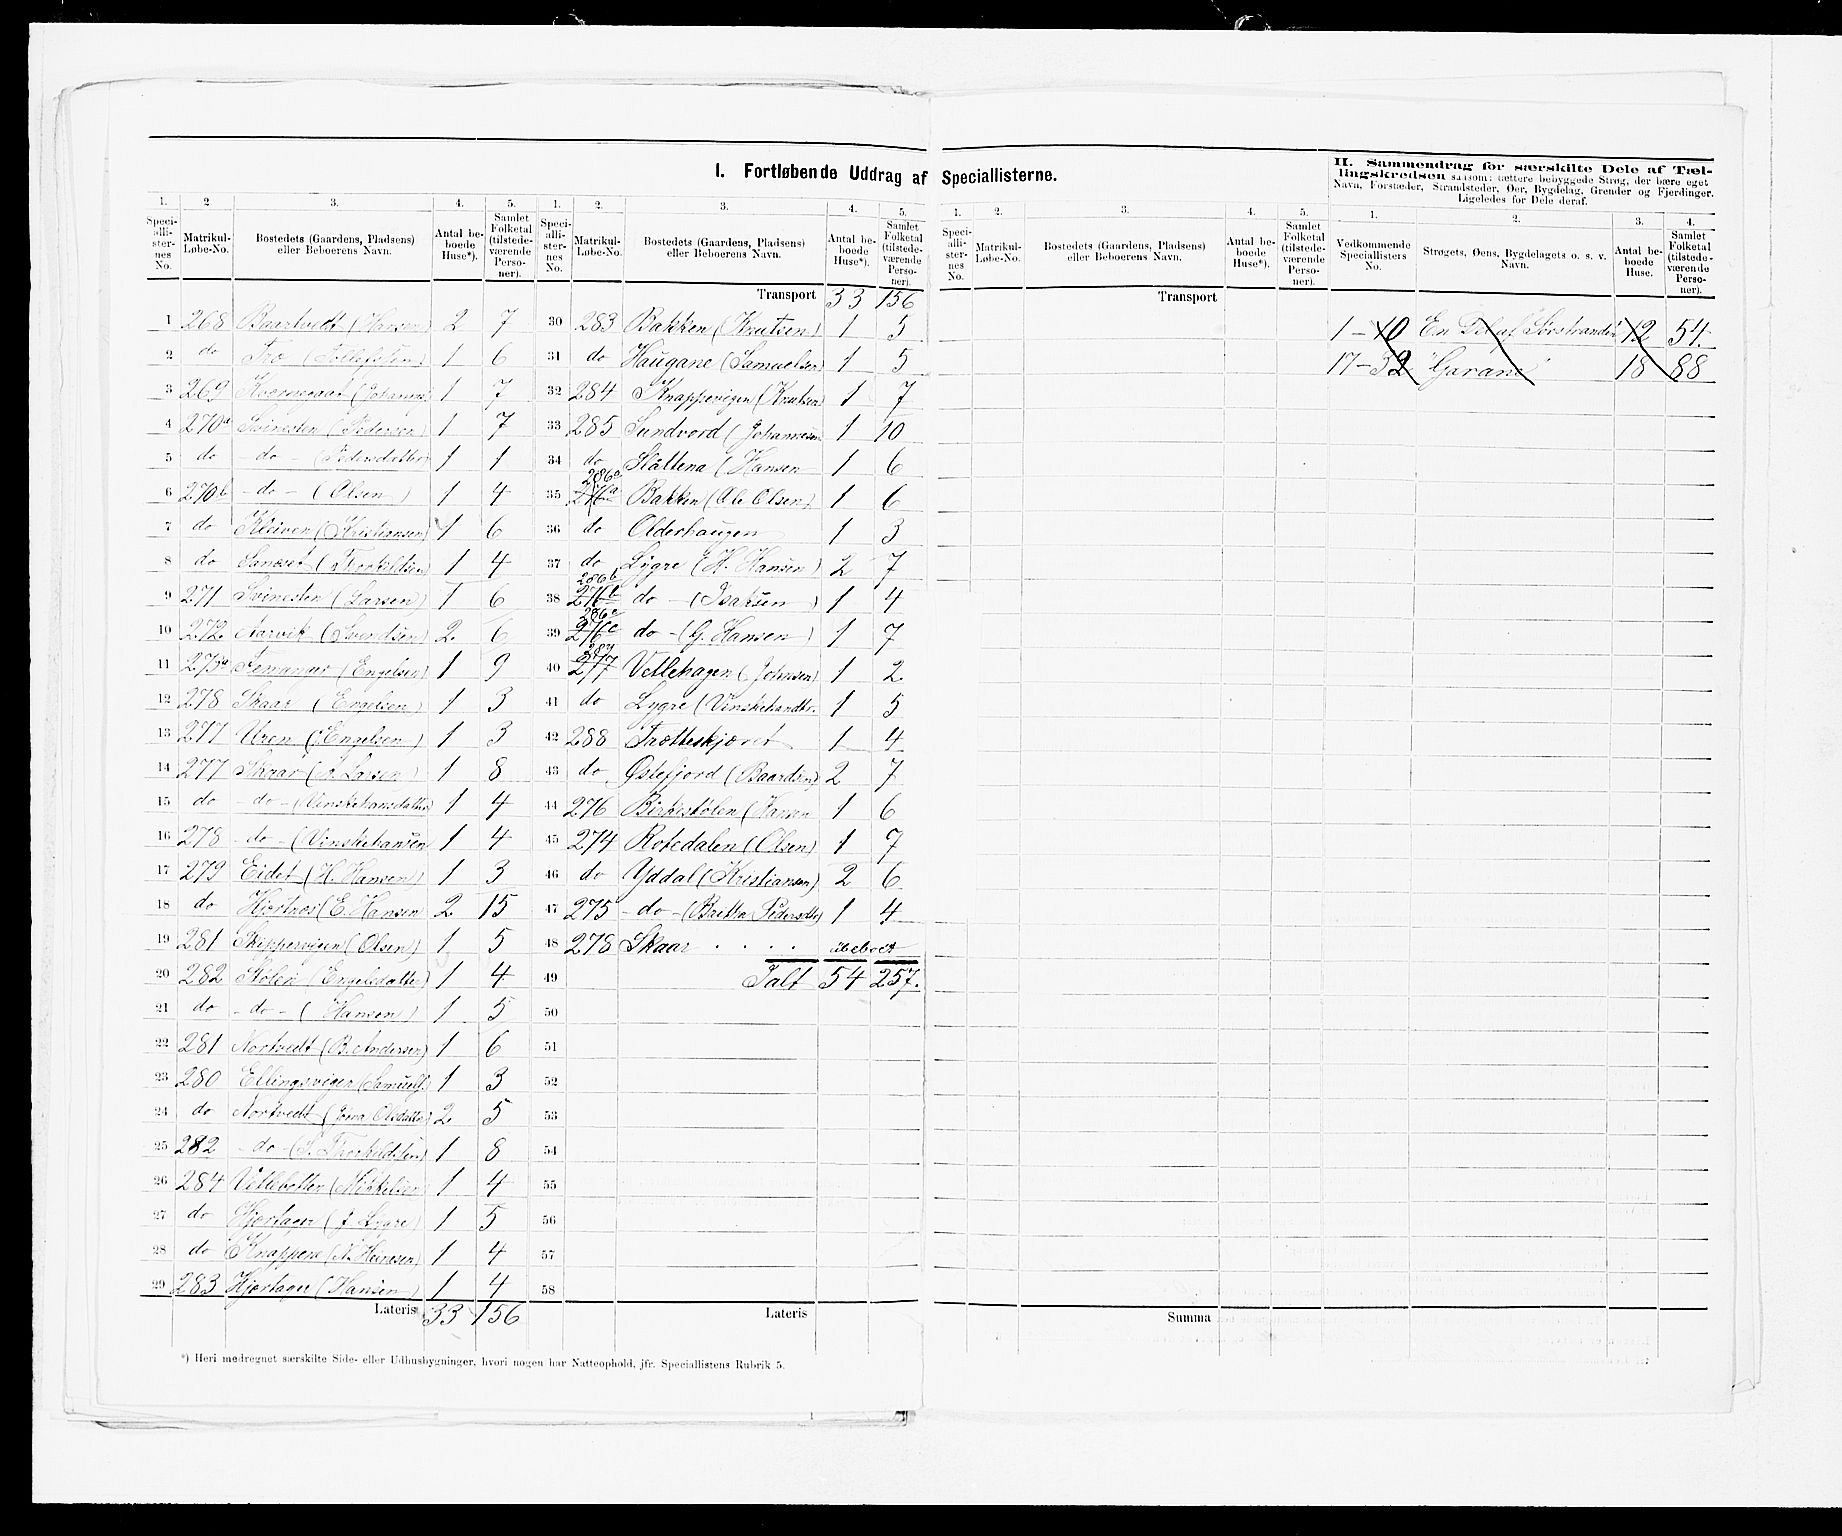 I. Fortløbende Uddrag af Speciallisterne.
II. Sammendrag for særskilte Dele af Tællingskredsen saasom: tættere bebyggede Strøg, der bære eget Navn, Forstæder, Strandsteder, Øer, Bygdelag, Grender og Fjerdinger. Ligeledes for Dele deraf.
1. 2. 3. 4. 5. 1. 2. 3. 4. 5.
Speciallisternes No. Matrikul-Løbe-No. Bostedets (Gaardens, Pladsens) eller Beboerens Navn. Antal beboede Huse*). Samlet Folketal (tilstedeværende Personer).
1 268 Baartvedt (Hansen) 2 7
2 do Tro (Tollefsen) 1 6
3 269 (Johannes) 1 7
4 270a Svinesten (Pedersen) 1 7
5 do - do - (Pedersdatter) 1 1
6 270b - do - (Olsen) 1 4
7 do Kleiven (Kristiansen) 1 6
8 do (Thorkildsen) 1 4
9 271 Svinesten (Larsen) 1 6
10 272 Aarvik (Svendsen) 2 6
11 275a (Engelsen) 1 9
12 278 Skaar (Engelsen) 1 3
13 277 Uren (Engelsen) 1 3
14 277 Skaar (A. Larsen) 1 8
15 do - do - (Vinskehansdatter) 1 4
16 278 - do - (Vinskehansen 1 4
17 279 Eidet (H. Hansen) 1 3
18 do Hjortnæs (E. Hansen 2 15
19 281 Skippervigen (Olsen) 1 5
20 282 Stølen (Engelsdatter) 1 4
21 do - do - (Hansen) 1 5
22 281 Nortvedt (B. Andersen) 1 6
23 280 Ellingsvigen (Samuels.) 1 3
24 do Nortvedt (Olsdatter) 2 5
25 282 - do - (S. Thorkildsen) 1 8
26 284 Vetlebotten (Mikkelsen 1 4
27 do Hjortager (J. Lygre) 1 5
28 do Knappene (N. Heinesen) 1 4
29 283 Hjortager (Hansen) 1 4
Lateris 33 156
Transport 33 156
30 283 Bakken (Knutsen) 1 5
31 do Haugane (Samuelsen) 1 5
32 284 Knappevigen (Knutsen) 1 7
33 285 Sundvord (Johannesen 1 10
34 do Slåttena (Hansen 1 6
35 286a 276a Bakken (Ole Olsen) 1 6
36 do Olderhaugen 1 3
37 do Lygre (H. Hansen) 2 7
38 286b 276b do - (Isaksen) 1 4
39 286c 276c do - (G. Hansen) 1 7
40 287 277 Vetlehagen (Johnsen) 1 2
41 do Lygre (Vinskehandtr. 1 5
42 288 Trætteskjæret 1 4
43 do Østefjord (Baardsen) 2 7
44 276 Birkestølen (Hansen 1 6
45 274 Rotedalen (Olsen) 1 7
46 do Yddal (Kristiansen) 2 6
47 275 - do - (Britta Pedersdtr) 1 4
48 278 Skaar . . . . ubeboet
49 Ialt 54 257.
50
51
52
53
54
55
56
57
58
Lateris
1. 2. 3. 4. 5.
Speciallisternes No. Matrikul-Løbe-No. Bostedets (Gaardens, Pladsens) eller Beboerens Navn. Antal beboede Huse*). Samlet Folketal (tilstedeværende Personer).
Transport
Summa
1. 2. 3. 4.
Vedkommende Speciallisters No. Strøgets, Øens, Bygdelagets o. s. v. Navn. Antal beboede Huse. Samlet Folketal (tilstedeværende Personer).
1-10 En Del af Sørstranden 12 54.
17-32 "Garane" 18 88
*) Heri medregnet særskilte Side- eller Udhusbygninger, hvori nogen har Natteophold, jfr. Speciallistens Rubrik 5.